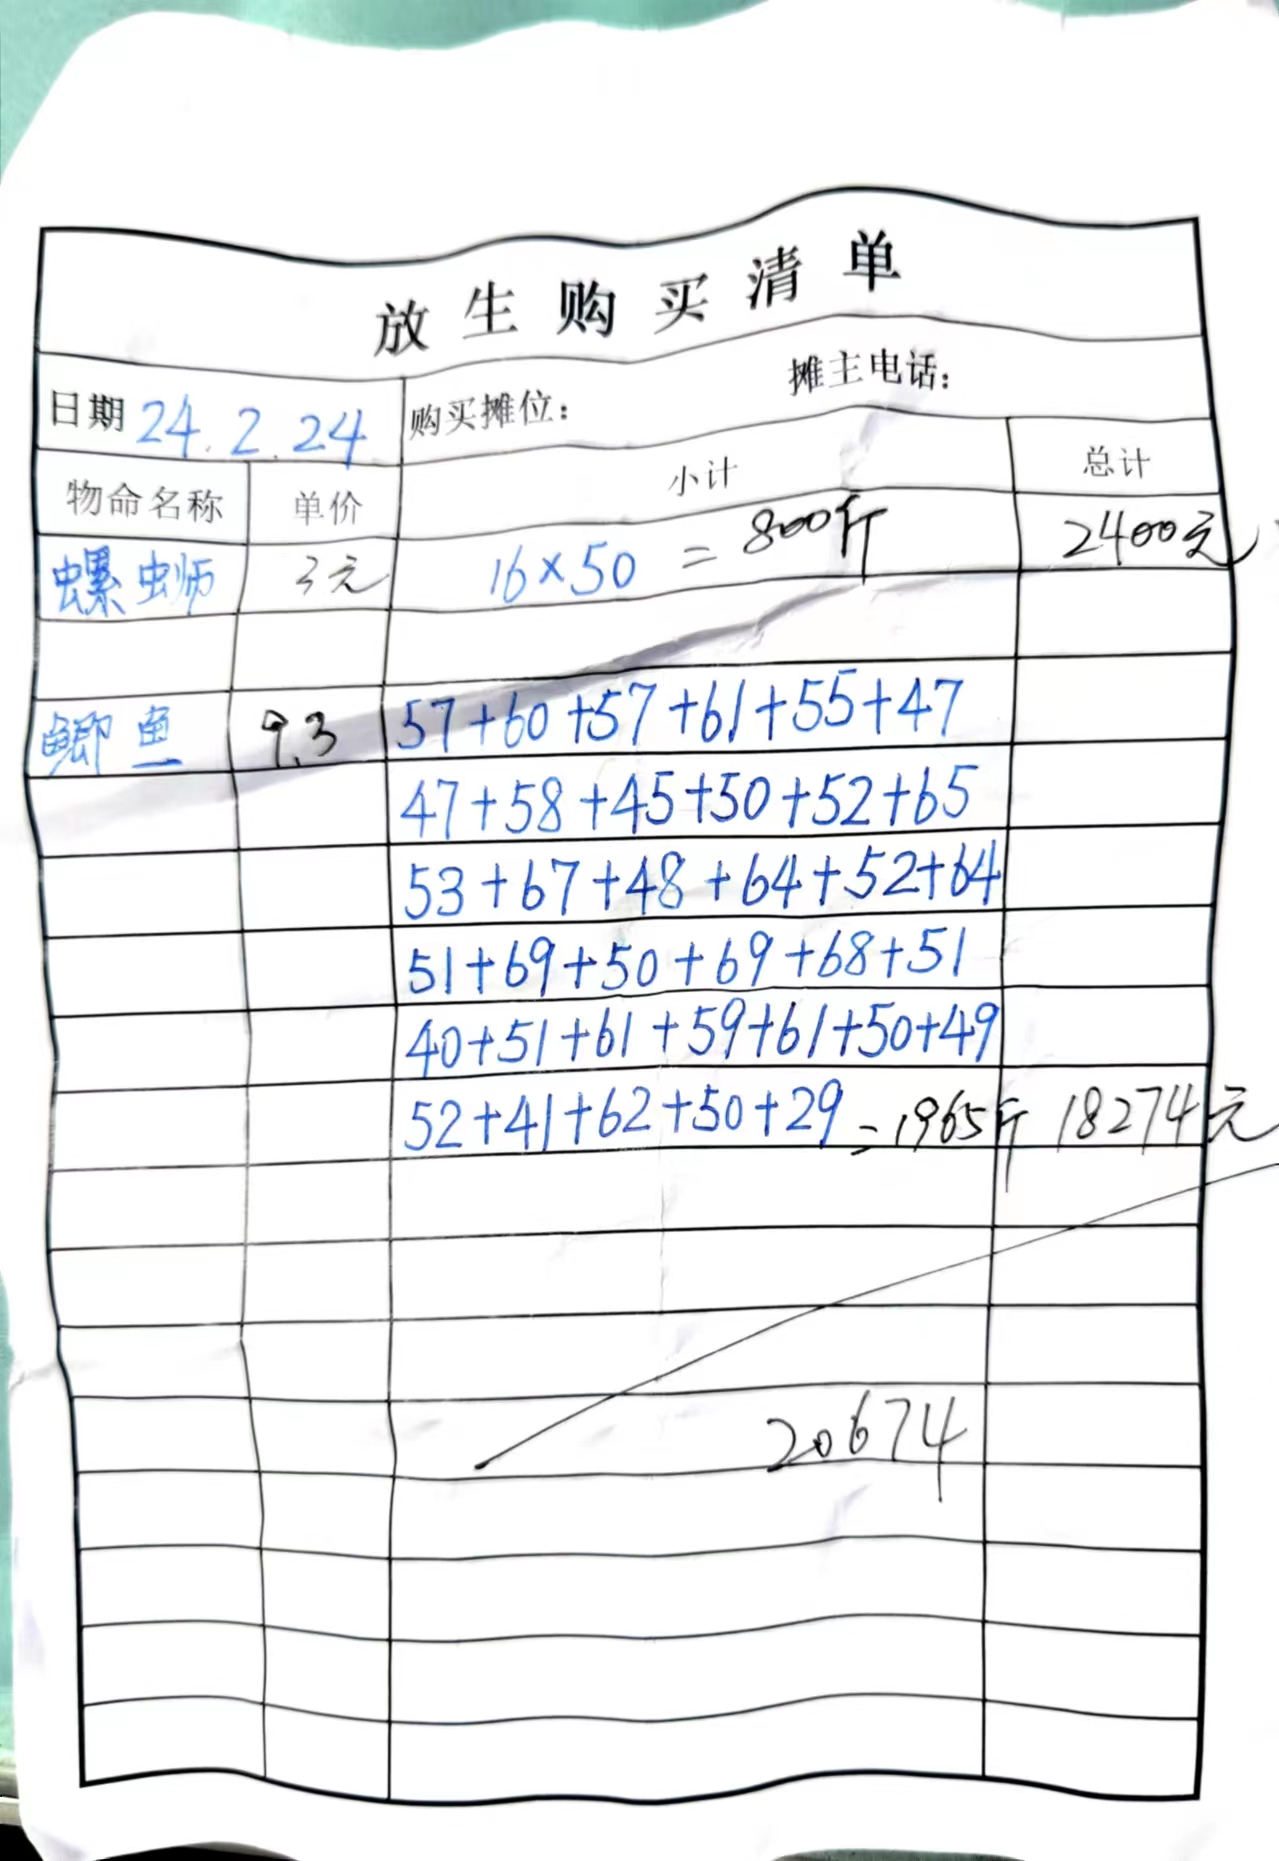 放生购买清单
日期 24.2.24 购买摊位： 摊主电话：
物命名称 单价 小计 总计
螺蛳 3元 16×50 = 800斤 2400元
鲫鱼 9.3 57+60+57+61+55+47
47+58+45+50+52+65
53+67+48+64+52+64
51+69+50+69+68+51
40+51+61+59+61+50+49
52+41+62+50+29=1965斤 18274元
20674